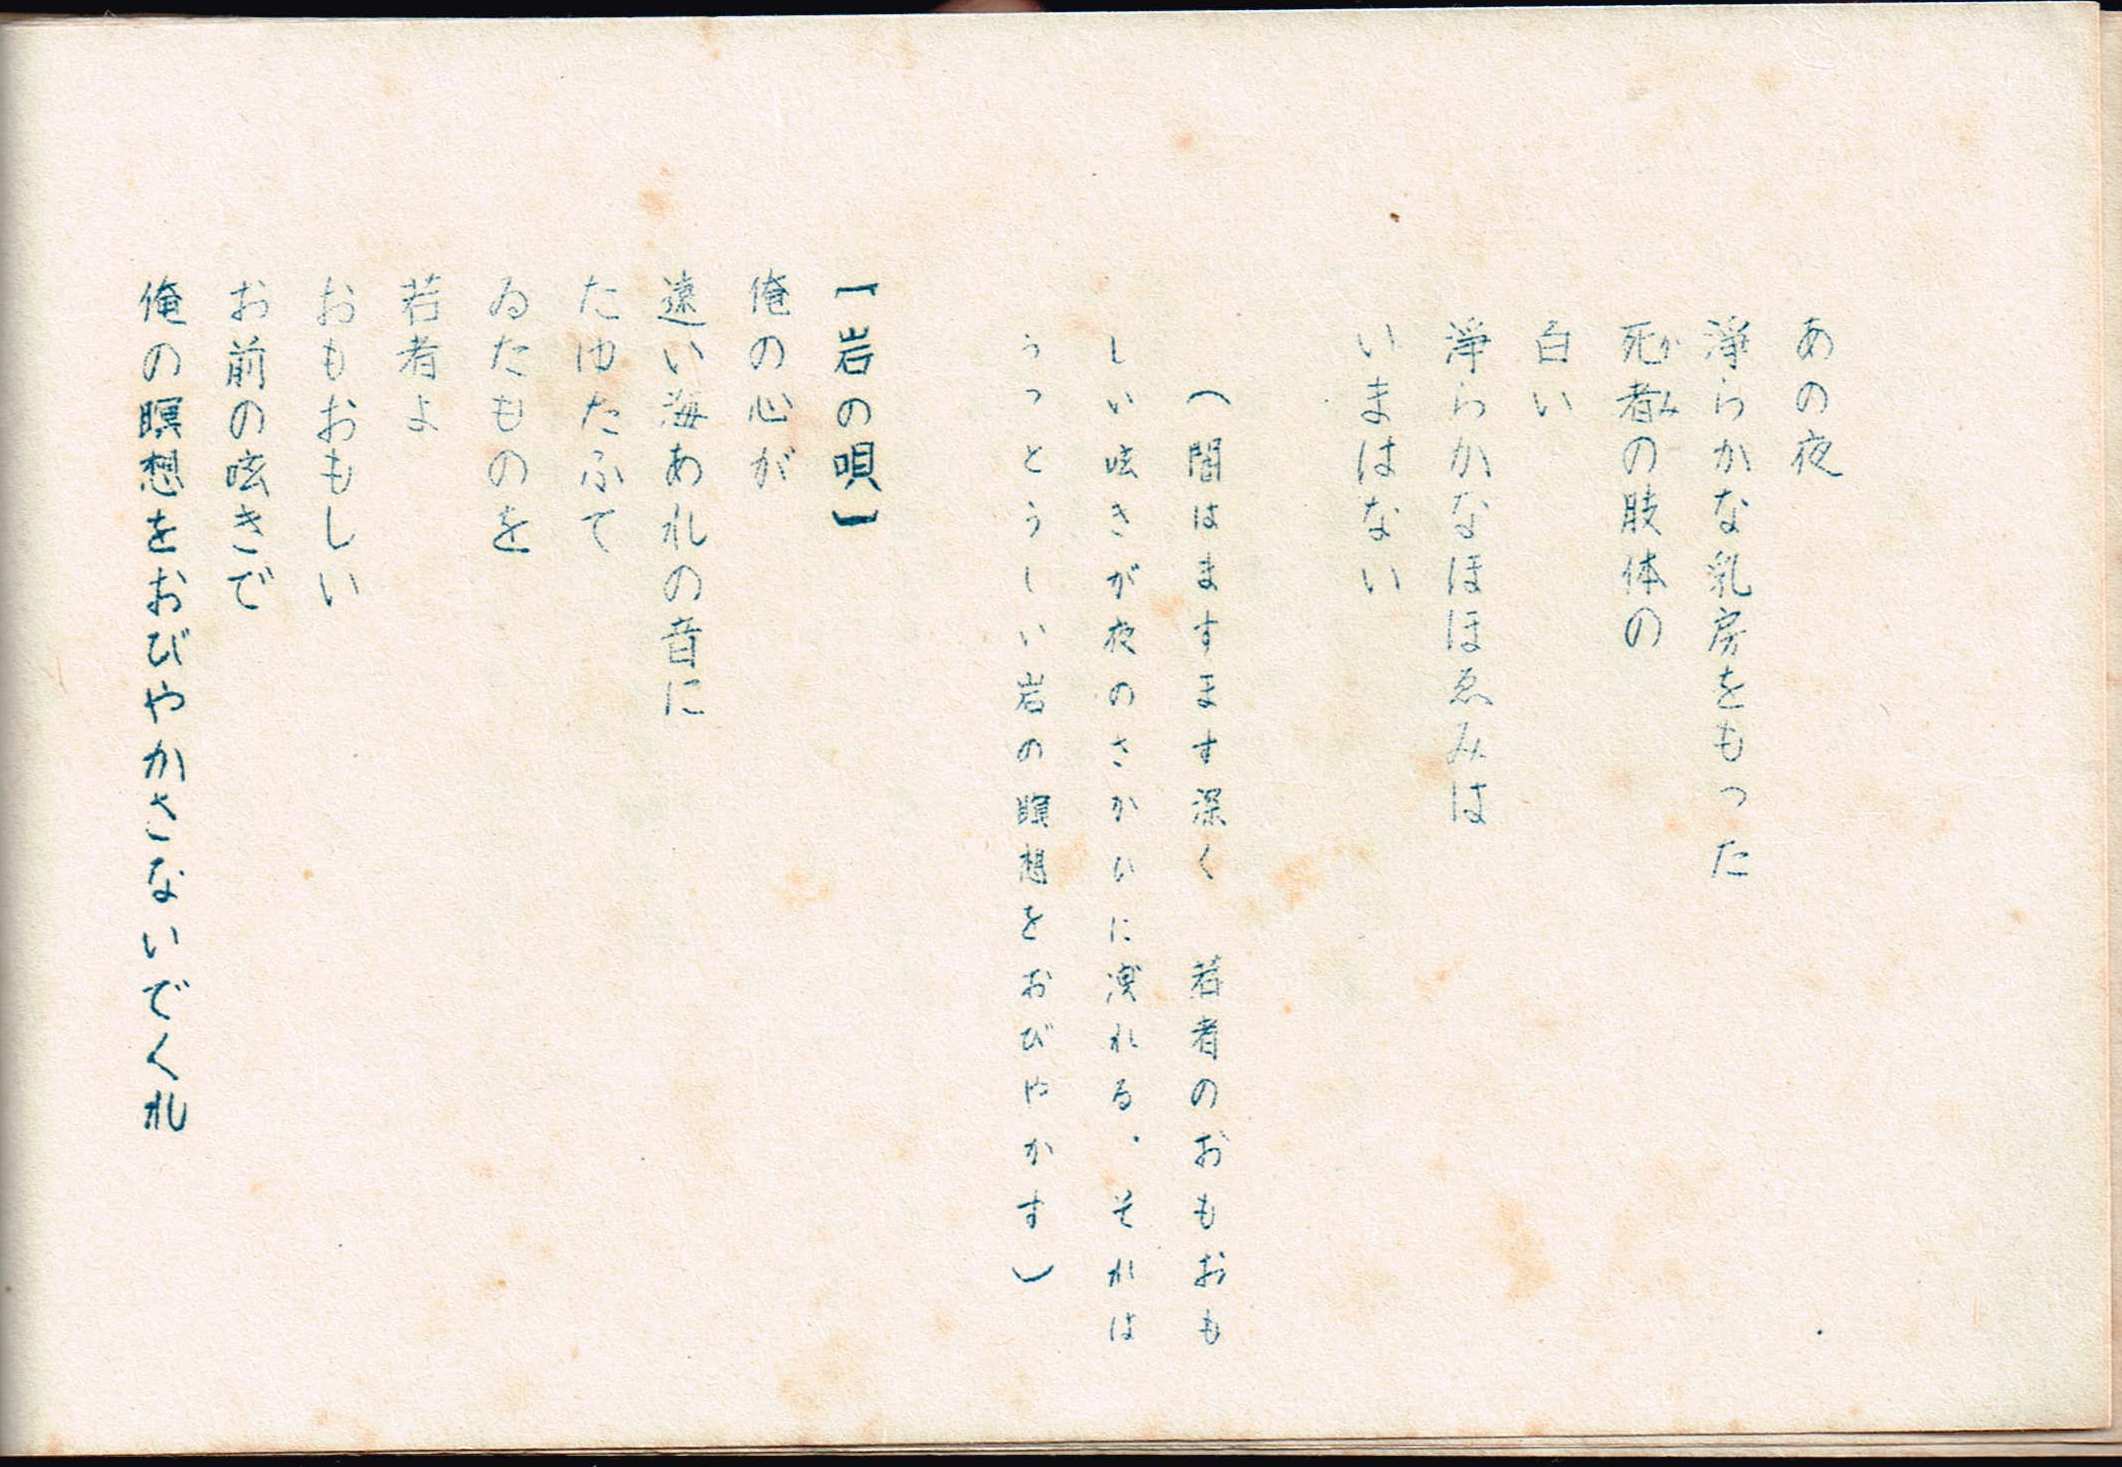 あの夜
淨らかな乳房をもった
死者の肢体の
かみ
白い
淨らかなほほゑみは
いまはない
(闇はますます深く　若者のおもおも
しい呟きが夜のさかひに洩れる．それは
うっとうしい岩の瞑想をおびやかす)
【岩の唄】
俺の心が
遠い海あれの音に
たゆたふて
ゐたものを
若者よ
おもおもしい
お前の呟きで
俺の瞑想をおびやかさないでくれ